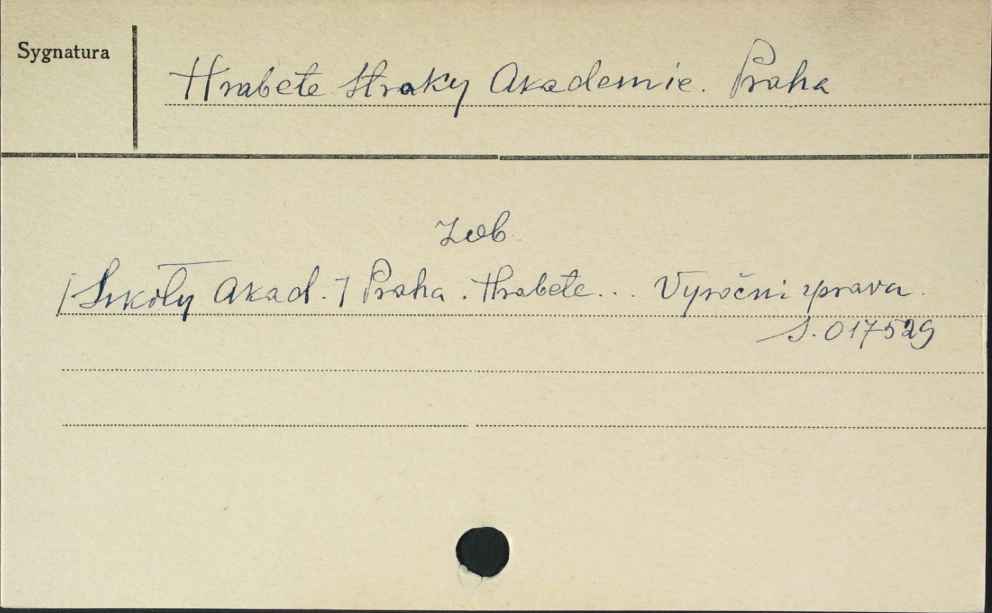 Sygnatura
Hrabete Straky Akademie. Praha
zob
[Szkoły Akad.] Praha. Hrabete... Výroční zprava.
S. 017529